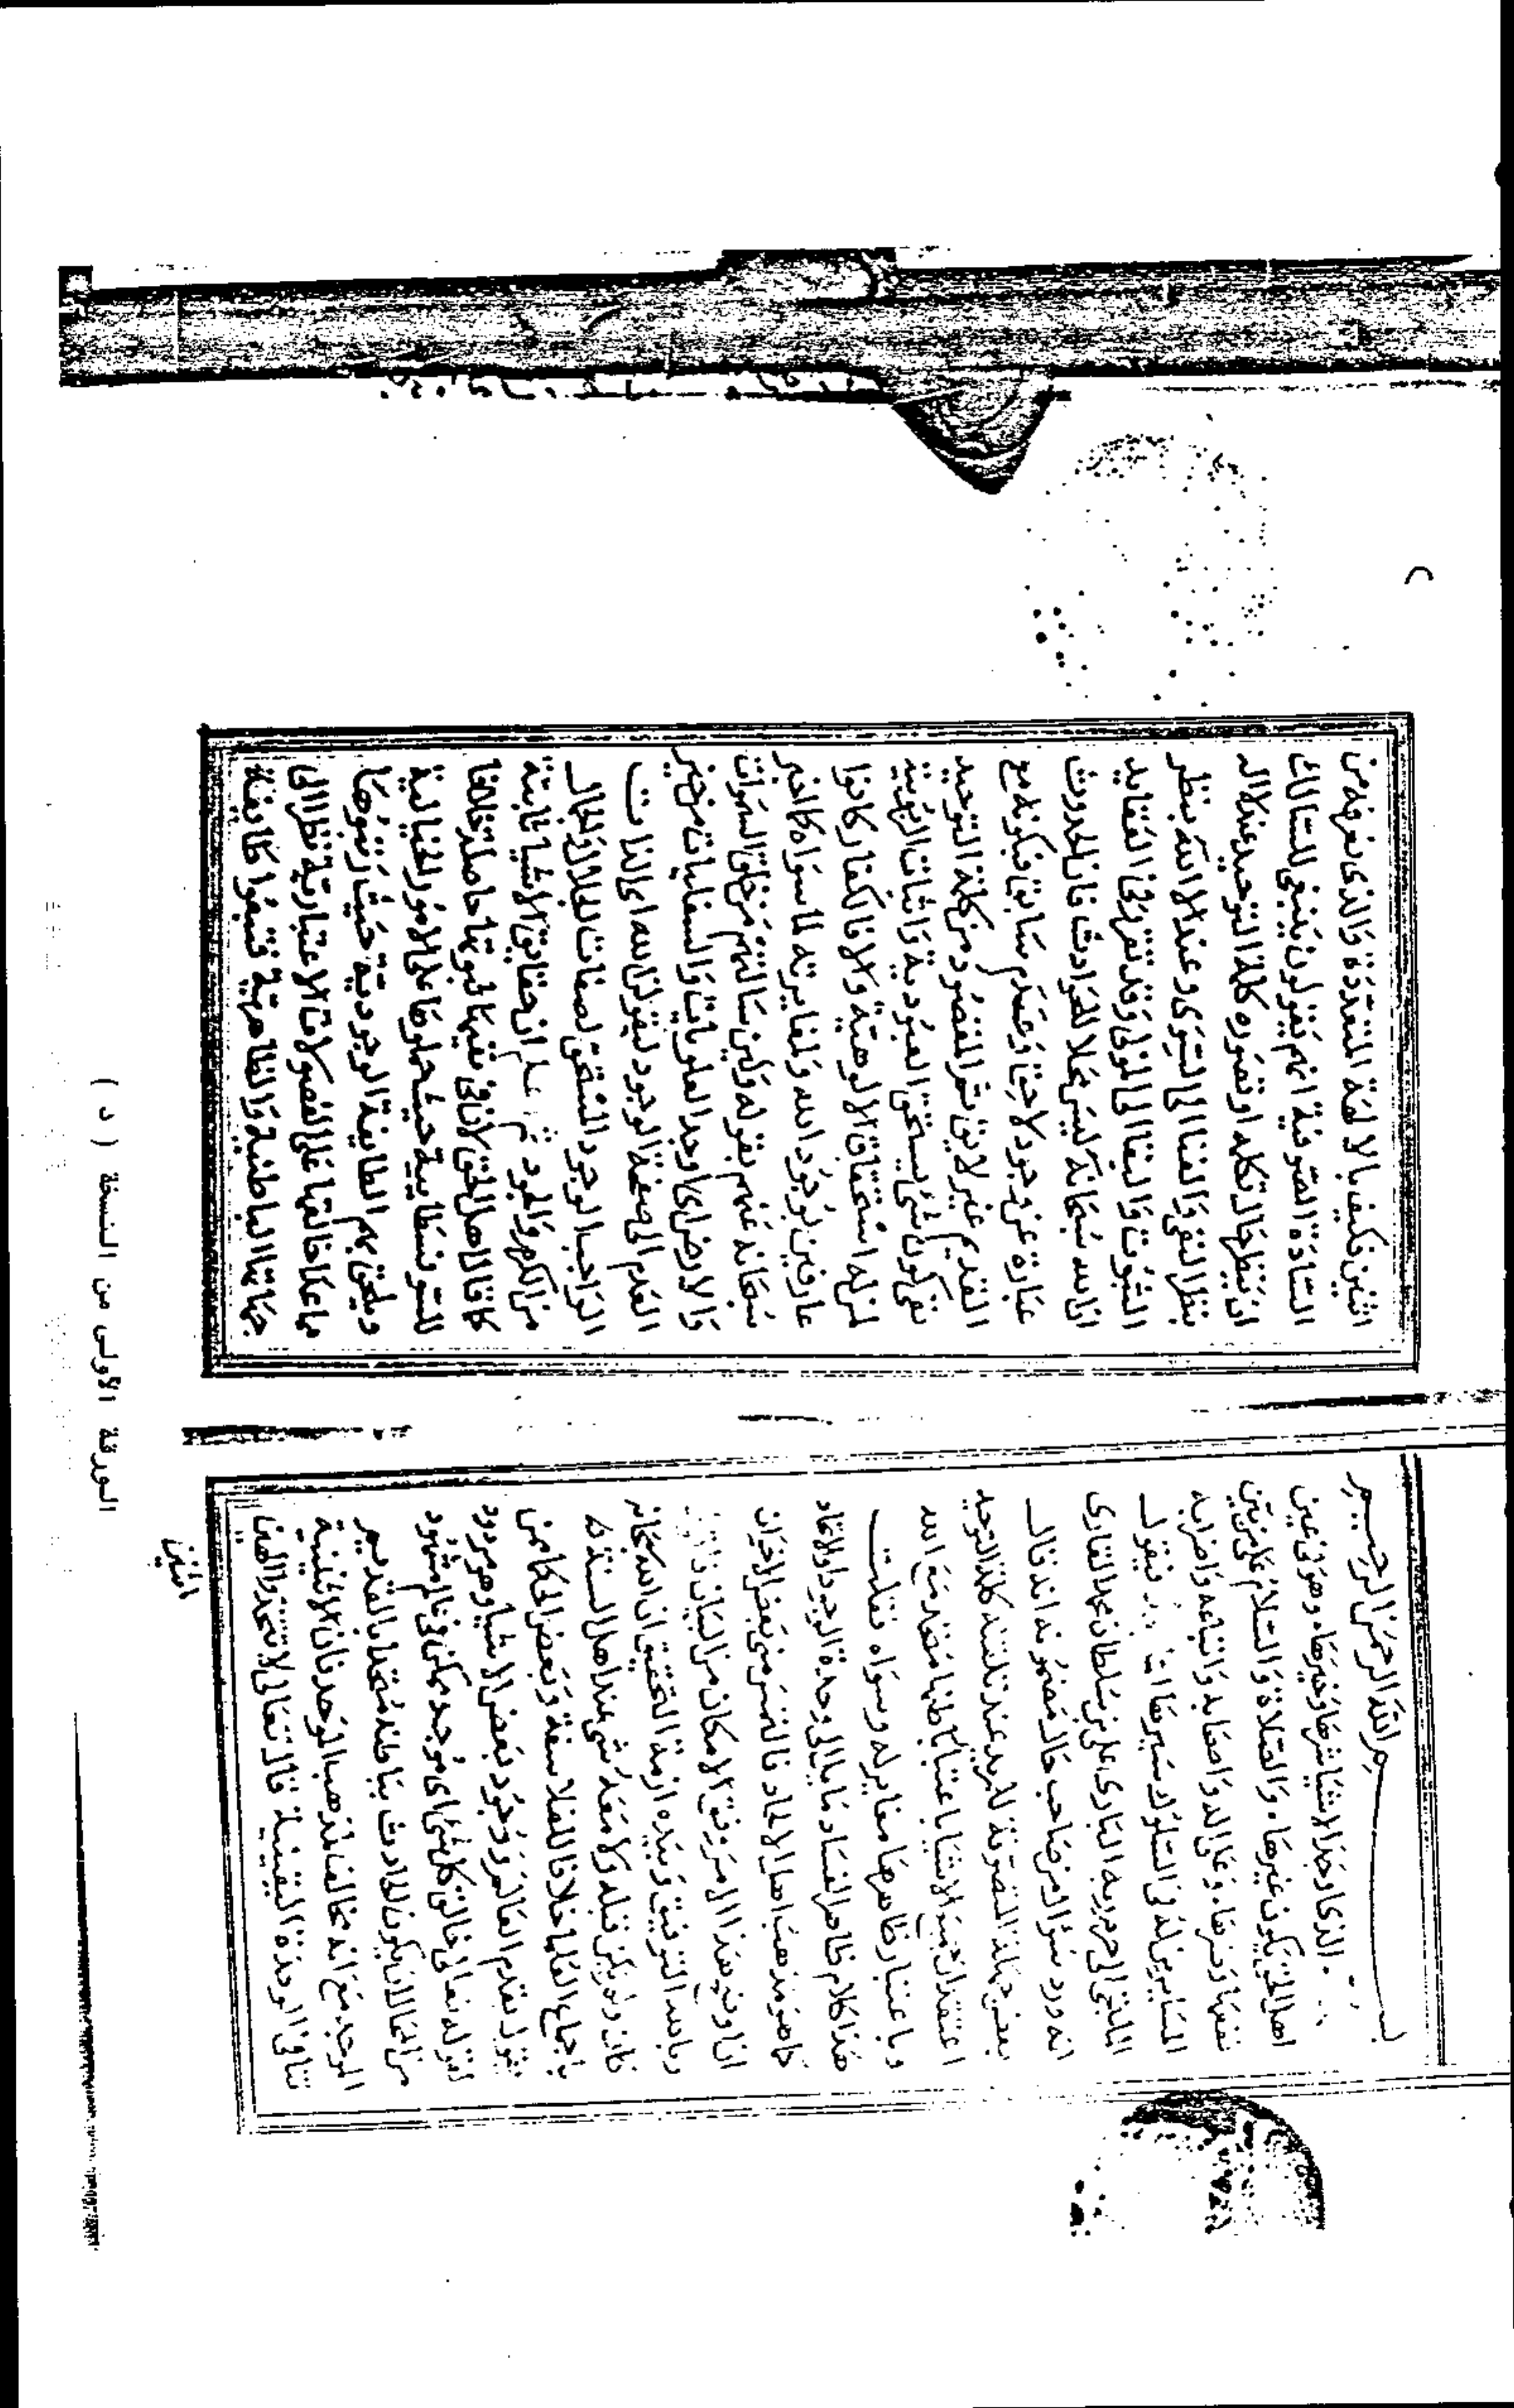 بسم الله الرحمن الرحيم
الذى اوجد الاشيا شرها وخيرها، وهو فى عين
اهل الحق يكون غيرها، والصلاة والسلام على من بين
نفعها وضرها، وعلى اله واصحابه واتباعه واحزابه
السايرين له فى السلوك سيرها فيقول
الملتجى الى حرم ربه البارى على بن سلطان محمد القارى
انه ورد سؤال من صاحب حال مضمونه انه قال
بعض جهلة المتصوفة للمريد عند تلقينه كلمة التوحيد
اعتقد ان جميع الاشيا باعتبار باطنها متحد مع الله
وباعتبار ظاهرها مغاير له وسواه فقلت
هذا كلام ظاهر الفساد مايل الى وحدة الوجود او الاتحاد
كما هو مذهب اهل الالحاد فالتمس منى بعض الاخوان
ان اوضح هذا الامر وفق الامكان من البيان
وبالله التوفيق وبيده ازمة التحقيق ان الله سبحانه
كان ولم يكن قبله ولا معه شى عند اهل السنة
باجماع العلما خلافا للفلاسفة وبعض الحكما ممن
يقول بقدم العالم ووجود بعض الاشيا وهو مردود
لقوله تعالى خالق كل شى اى موجد ممكن فى عالم مشهود
من المحال ان يكون الحادث بباطنه متحدا بالقديم
الموجد مع انه مخالف لمذهب الموحد فان الاثنينية
تنافى الوحدة اليقينية قال تعالى لا تتخذوا الهين
اثنين
اثنين فكيف بالالهة المتعددة والذى نعرفه من
السادة الصوفية انهم يقولون ينبغى للسالك
ان ينظر حال تكلمه او تصوره كلمة التوحيد عند لا اله
بنظر النفى والفنا الى السوى وعند الا الله بنظر
الثبوت والبقا الى المولى وقد تقرر فى العقايد
ان الله سبحانه ليس محلا للحوادث فان الحدوث
عبارة عن وجود لاحق وعدم سابق فيكون مع
القديم غير لايق ثم المقصود من كلمة التوحيد
نفى كون شى يستحق العبودية واثبات الربوبية
لمن له استحقاق الالوهية والا فالكفار كانوا
عارفين لوجود الله ولمغايرته لما سواه كما اخبر
سبحانه عنهم بقوله ولئن سالتهم من خلق السموات
والارض اى اوجد العلويات والسفليات من حيز
العدم الى صفة الوجود ليقولن الله اى الذات
الواجب الوجود المستحق لصفات الجلال والجمال
من الكرم والجود ثم اعلم ان حقايق الاشيا ثابتة
كما قال اهل الحق لان فى نفيها ثبوتها حاصلة خلافا
للسوفسطايية حيث حملوها على الامور الخيالية
ويلحق بهم الطايفة الوجودية حيث رتبوها
ما عكا خالفها على الفصولات الاعتبارية نظرا الى
جهاتها الباطنية والظاهرية فتبعوا طايفة
الورقة الأولى من النسخة ( د )